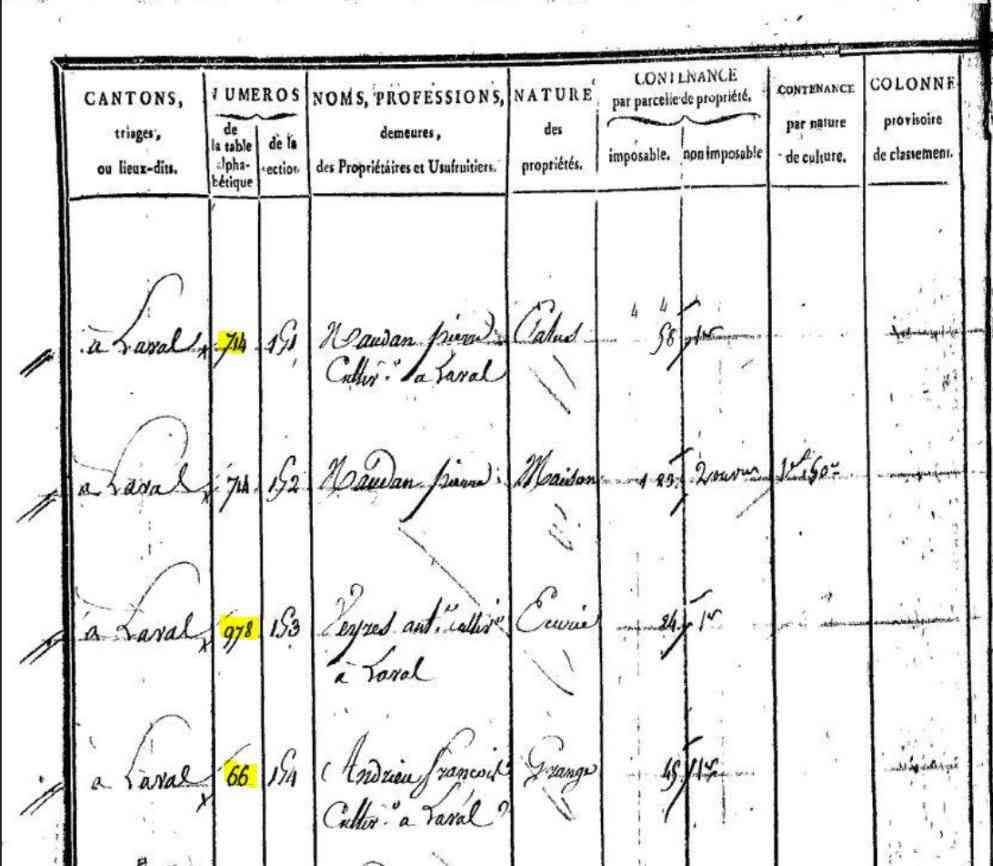 CANTONS,
triages,
ou lieux-dits.
NUMEROS
de
la table
alpha-
bétique
de la
section
NOMS, PROFESSIONS,
demeures,
des Propriétaires et Usufruitiers.
NATURE
des
propriétés.
CONTENANCE
par parcelle de propriété.
imposable. non imposable
CONTENANCE
par nature
de culture.
COLONNE
provisoire
de classement.
à Laval 714 151 Naudan pierre 58 1er
Cultivr a Laval
à Laval 714 152 Naudan pierre Maison 2 ouver
à Laval 978 153 Veyres ant. cultivr Ecurie 24 1er
à Laval
à Laval 66 154 Andrieu francois Grange 45 1er
Cultivr a Laval